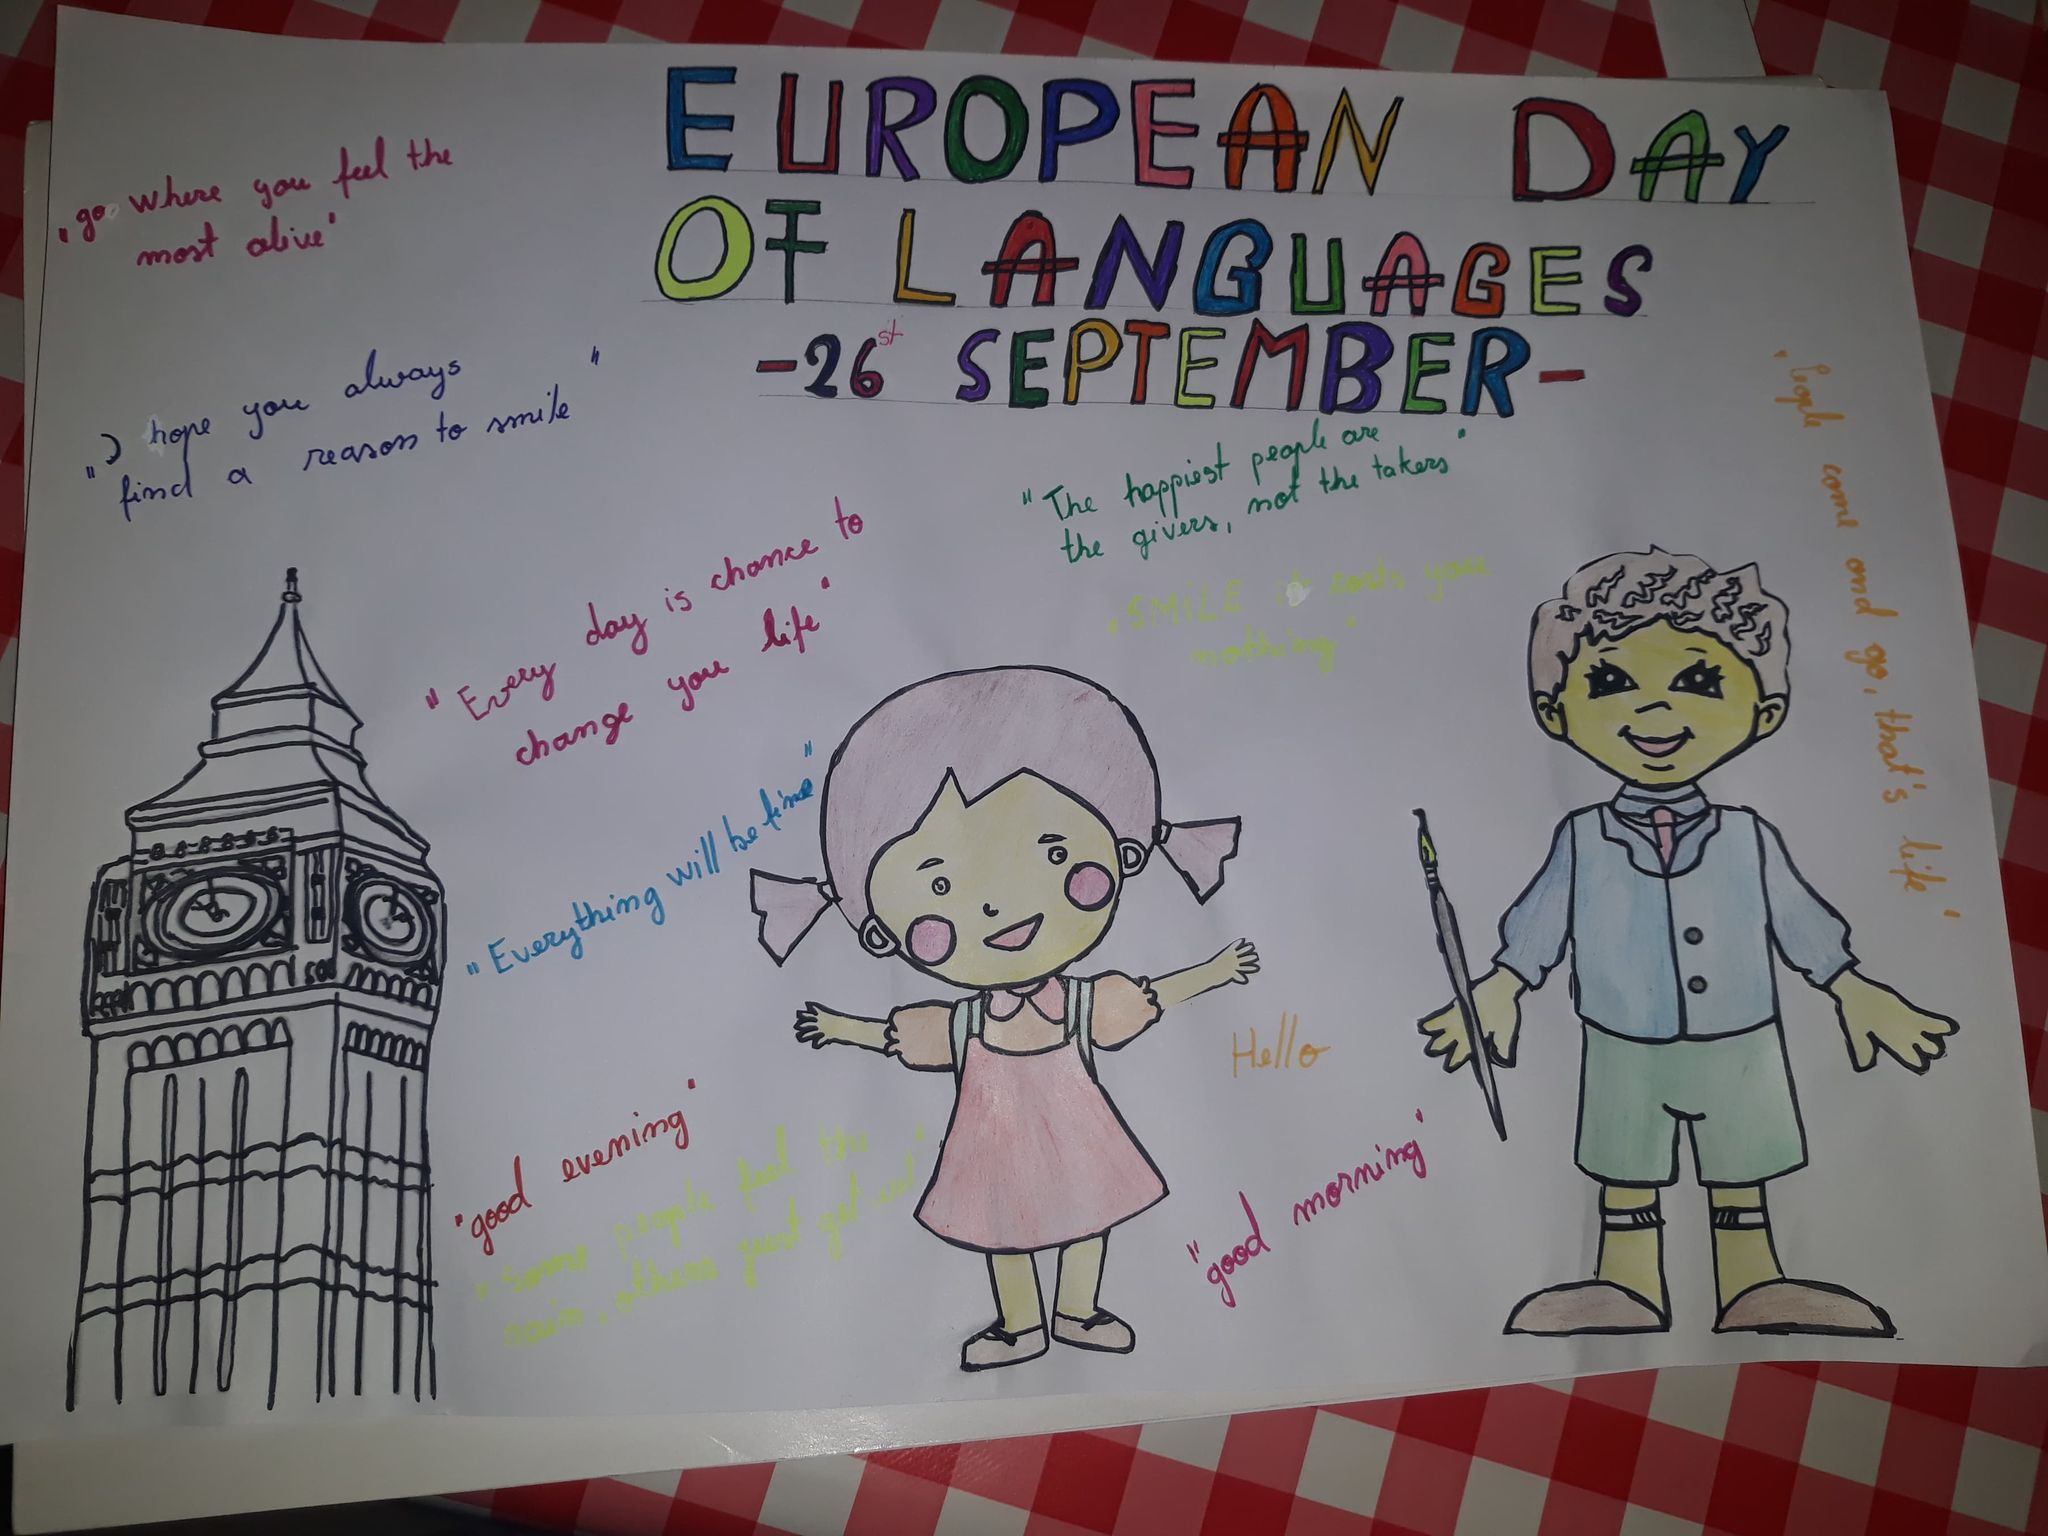 EUROPEAN DAY
OF LANGUAGES
-26st SEPTEMBER-
"go where you feel the
most alive"
"I hope you always
find a reason to smile"
"Every day is chance to
change you life"
"The happiest people are
the givers, not the takers"
"SMILE it costs you
nothing"
"People come and go, that's life"
"Everything will be fine"
Hello
"good evening"
"Some people feel the
rain, others just get wet"
"good morning"